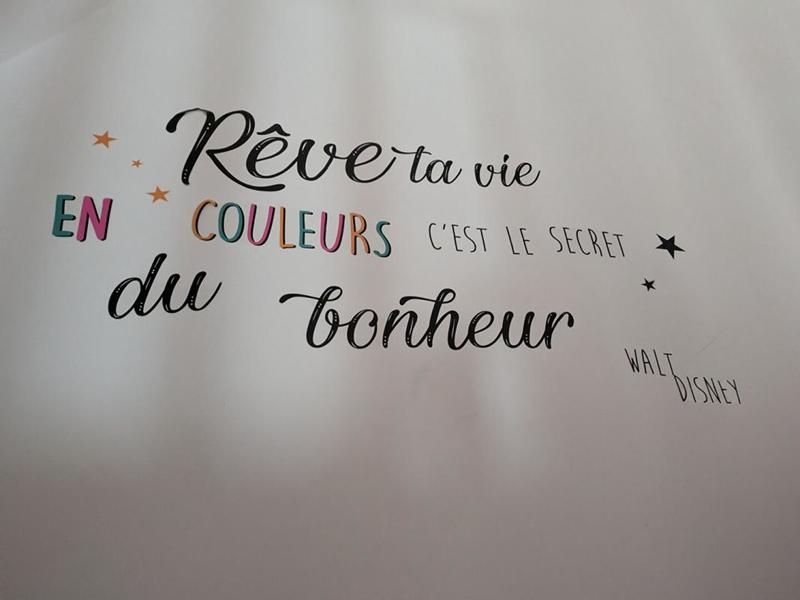 Rêve ta vie
EN COULEURS C'EST LE SECRET
du bonheur
WALT
DISNEY